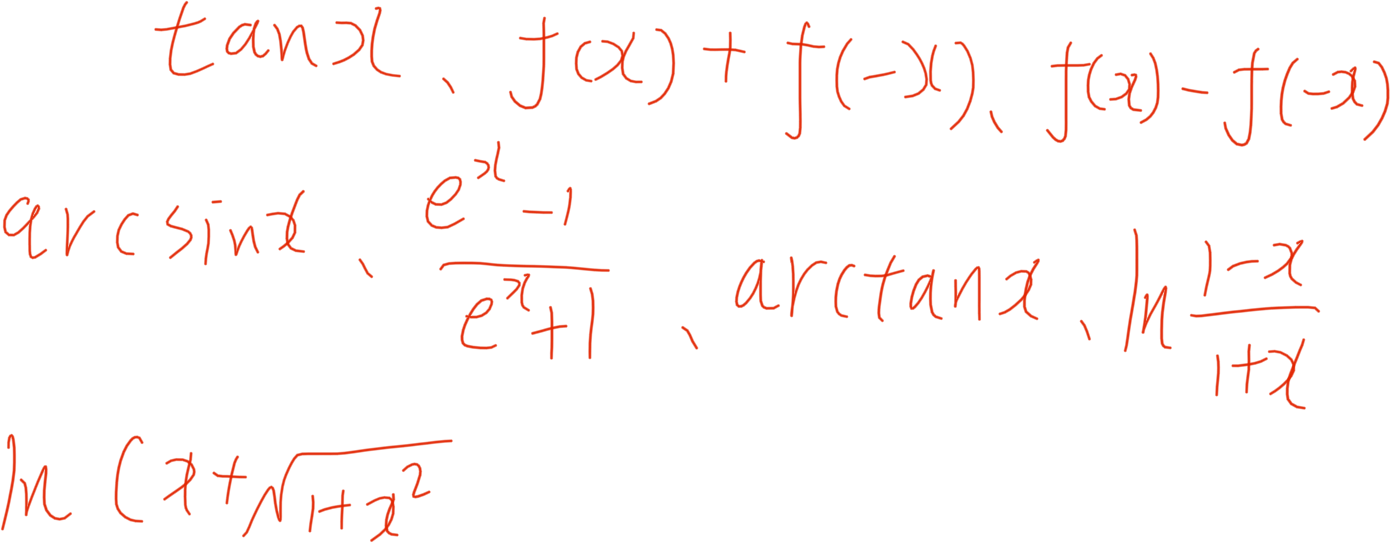 tanx、f(x)+f(-x)、f(x)-f(-x)
arcsinx、\frac{e^x-1}{e^x+1}、arctanx、ln\frac{1-x}{1+x}
ln(x+\sqrt{1+x^2}